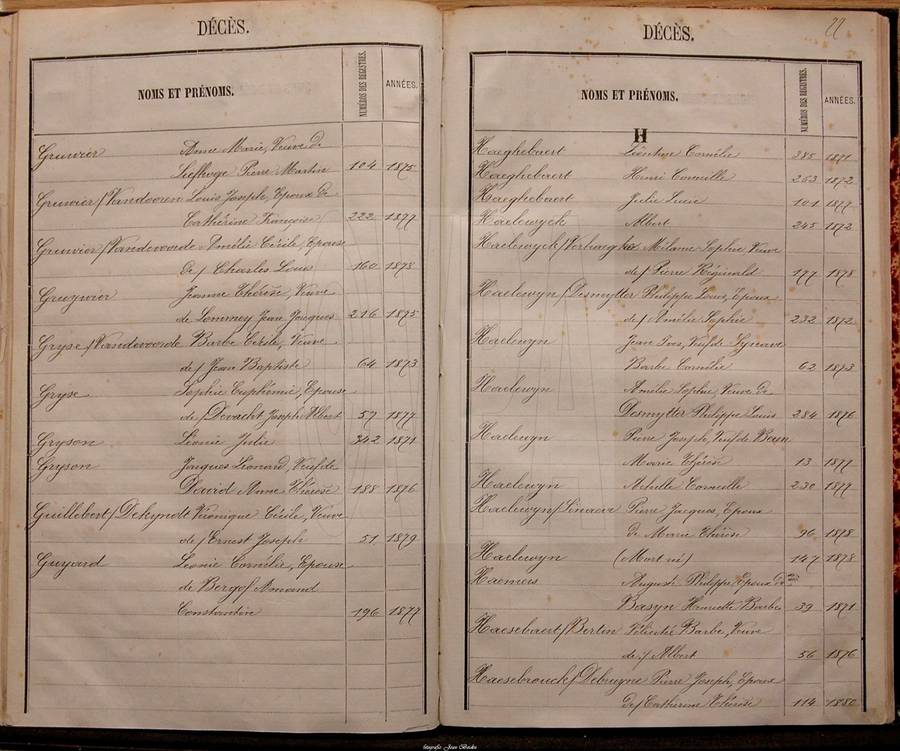 DÉCÈS.
NOMS ET PRÉNOMS.
NUMÉROS DES REGISTRES.
ANNÉES.
Gruwier Anne Marie, Veuve de
Liefhoge Pierre Martin 104 1875
Gruwier/Vandooren Louis Joseph, Epoux de
Cathérine Françoise 222 1877
Gruwier/Vandevoorde Amélie Cécile, Epouse
de/Charles Louis 160 1878
Gruywier Jeanne Thérèse, Veuve
de Lommey Jean Jacques 216 1875
Gryse/Vandevoorde Barbe Cécile, Veuve
de/Jean Baptiste 64 1873
Gryse Sophie Euphémie, Epouse
de/Devacht Joseph Albert 57 1877
Gryson Léonie Julie 342 1871
Gryson Jacques Léonard, Veuf de
David Anne Thérèse 188 1876
Guillebert/Dekyndt Véronique Cécile, Veuve
de/Ernest Joseph 51 1879
Guyard Léonie Cornélie, Epouse
de Bergof Armand
Constantin 196 1877
22
DÉCÈS.
NOMS ET PRÉNOMS.
NUMÉROS DES REGISTRES.
ANNÉES.
H
Haeghebaert Léontine Cornélie 285 1871
Haeghebaert Henri Corneille 263 1872
Haeghebaert Julie Lucie 101 1877
Haelewyck Albert 245 1872
Haelewyck/Verhaeghe Mélanie Sophie, Veuve
de/Pierre Réginald 177 1878
Haelewyn/Desmytter Philippe Louis, Epoux
de/Amélie Sophie 232 1872
Haelewyn Jean Ives, Veuf de
Barbe Cornélie 62 1873
Haelewyn Amélie Sophie, Veuve de
Desmytter Philippe Louis 284 1876
Haelewyn Pierre Joseph, Veuf de
Marie Thérèse 13 1877
Haelewyn Achille Corneille 230 1877
Haelewyn/Sinaeve Pierre Jacques, Epoux
de Marie Thérèse 96 1878
Haelewyn (Mort né) 147 1878
Haemers Auguste Philippe, Epoux de
Basyn Henriette Barbe 39 1871
Haesebaert/Bertin Félicité Barbe, Veuve
de/Albert 56 1876
Haesebrouck/Debruyne Pierre Joseph, Epoux
de/Catherine Thérèse 114 1880
fotografie Jean Boedts